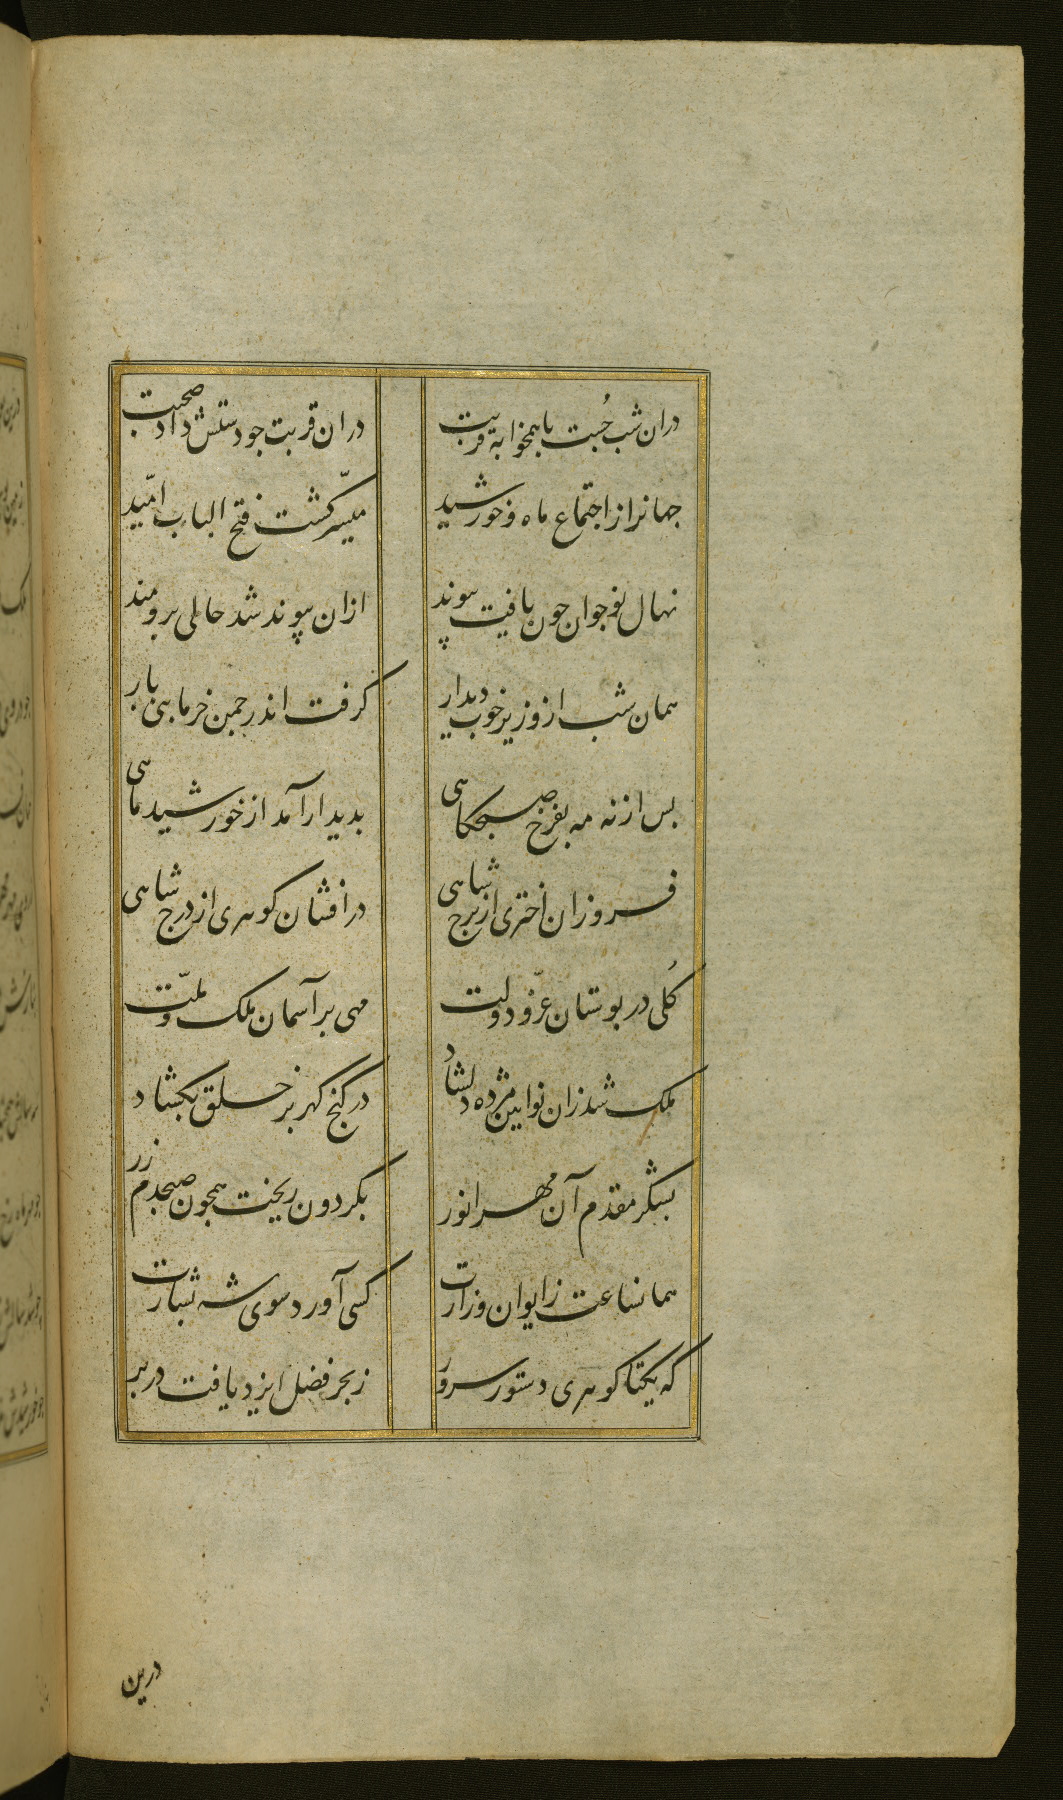 دران شب جُست با همخوابه قربت
دران قربت جو دستش داد صحبت
جهانرا از اجتماع ماه و خورشید
میسّر کشت فتح الباب امّید
نهال نوجوان جون یافت پیوند
ازان پیوند شد حالی برومند
همان شب از وزیر خوب دیدار
کرفت اندر جمن خرما بنی بار
بس از نه مه بفرخ صبحکاهی
بدیدار آمد از خورشید ماهی
فروزان اختری از برج شاهی
درافشان کوهری از درج شاهی
کُلی در بوستان عزّ و دولت
مهی بر آسمان ملک و ملّت
ملک شد زان نوایین مژده دلشاد
در کنج کهر بر خلق بکشاد
بشکر مقدم آن مهر انور
بکردون ریخت همجون صبحدم زر
همانساعت ز ایوان وزارت
کسی آورد سوی شه بشارت
که یکتا کوهری دستور سرور
ز بحر فضل ایزد یافت در بر
درین